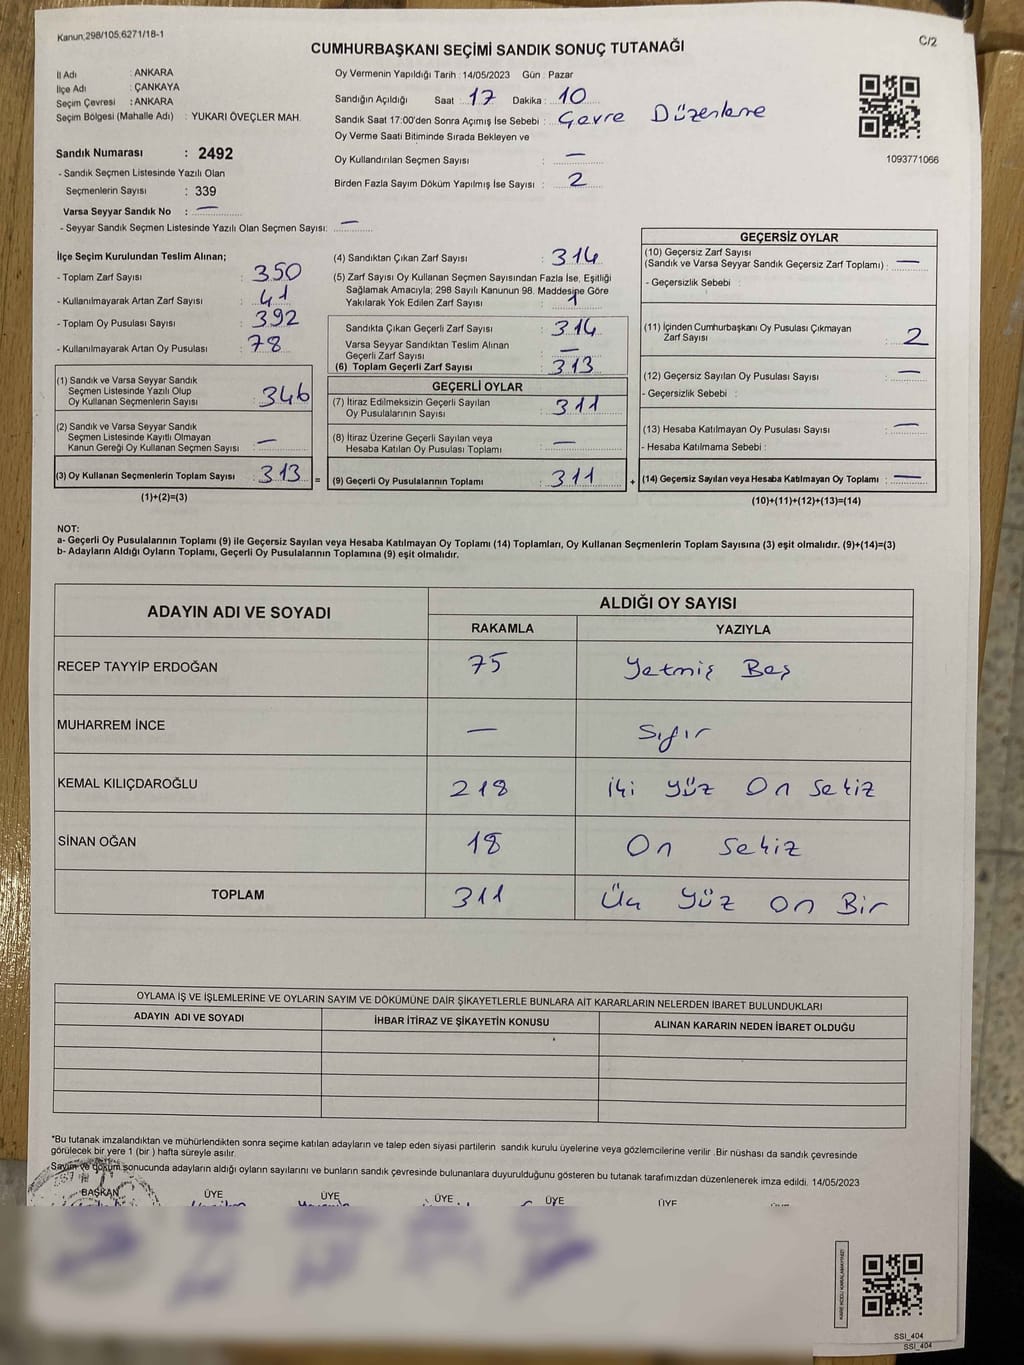 Kanun;298/105,6271/18-1
C/2
CUMHURBAŞKANI SEÇİMİ SANDIK SONUÇ TUTANAĞI
İl Adı : ANKARA
İlçe Adı : ÇANKAYA
Seçim Çevresi : ANKARA
Seçim Bölgesi (Mahalle Adı) : YUKARI ÖVEÇLER MAH.
Sandık Numarası : 2492
- Sandık Seçmen Listesinde Yazılı Olan
Seçmenlerin Sayısı : 339
Varsa Seyyar Sandık No : —
- Seyyar Sandık Seçmen Listesinde Yazılı Olan Seçmen Sayısı: —
Oy Vermenin Yapıldığı Tarih : 14/05/2023 Gün : Pazar
Sandığın Açıldığı Saat : 17 Dakika : 10
Sandık Saat 17:00'den Sonra Açımış İse Sebebi : Çevre Düzenleme
Oy Verme Saati Bitiminde Sırada Bekleyen ve
Oy Kullandırılan Seçmen Sayısı : —
Birden Fazla Sayım Döküm Yapılmış İse Sayısı : 2
1093771066
İlçe Seçim Kurulundan Teslim Alınan;
- Toplam Zarf Sayısı : 350
- Kullanılmayarak Artan Zarf Sayısı : 41
- Toplam Oy Pusulası Sayısı : 392
- Kullanılmayarak Artan Oy Pusulası : 78
(1) Sandık ve Varsa Seyyar Sandık
Seçmen Listesinde Yazılı Olup
Oy Kullanan Seçmenlerin Sayısı : 346
(2) Sandık ve Varsa Seyyar Sandık
Seçmen Listesinde Kayıtlı Olmayan
Kanun Gereği Oy Kullanan Seçmen Sayısı : —
(3) Oy Kullanan Seçmenlerin Toplam Sayısı : 313 =
(1)+(2)=(3)
(4) Sandıktan Çıkan Zarf Sayısı : 314
(5) Zarf Sayısı Oy Kullanan Seçmen Sayısından Fazla İse, Eşitliği
Sağlamak Amacıyla; 298 Sayılı Kanunun 98. Maddesine Göre
Yakılarak Yok Edilen Zarf Sayısı : 1
Sandıkta Çıkan Geçerli Zarf Sayısı : 314
Varsa Seyyar Sandıktan Teslim Alınan
Geçerli Zarf Sayısı : —
(6) Toplam Geçerli Zarf Sayısı : 313
GEÇERLİ OYLAR
(7) İtiraz Edilmeksizin Geçerli Sayılan
Oy Pusulalarının Sayısı : 311
(8) İtiraz Üzerine Geçerli Sayılan veya
Hesaba Katılan Oy Pusulası Toplamı : —
(9) Geçerli Oy Pusulalarının Toplamı : 311 +
GEÇERSİZ OYLAR
(10) Geçersiz Zarf Sayısı
(Sandık ve Varsa Seyyar Sandık Geçersiz Zarf Toplamı) : —
- Geçersizlik Sebebi :
(11) İçinden Cumhurbaşkanı Oy Pusulası Çıkmayan
Zarf Sayısı : 2
(12) Geçersiz Sayılan Oy Pusulası Sayısı : —
- Geçersizlik Sebebi :
(13) Hesaba Katılmayan Oy Pusulası Sayısı : —
- Hesaba Katılmama Sebebi :
(14) Geçersiz Sayılan veya Hesaba Katılmayan Oy Toplamı : —
(10)+(11)+(12)+(13)=(14)
NOT:
a- Geçerli Oy Pusulalarının Toplamı (9) ile Geçersiz Sayılan veya Hesaba Katılmayan Oy Toplamı (14) Toplamları, Oy Kullanan Seçmenlerin Toplam Sayısına (3) eşit olmalıdır. (9)+(14)=(3)
b- Adayların Aldığı Oyların Toplamı, Geçerli Oy Pusulalarının Toplamına (9) eşit olmalıdır.
ADAYIN ADI VE SOYADI
ALDIĞI OY SAYISI
RAKAMLA YAZIYLA
RECEP TAYYİP ERDOĞAN 75 Yetmiş Beş
MUHARREM İNCE — Sıfır
KEMAL KILIÇDAROĞLU 218 iki yüz On Sekiz
SİNAN OĞAN 18 On Sekiz
TOPLAM 311 Üç Yüz On Bir
OYLAMA İŞ VE İŞLEMLERİNE VE OYLARIN SAYIM VE DÖKÜMÜNE DAİR ŞİKAYETLERLE BUNLARA AİT KARARLARIN NELERDEN İBARET BULUNDUKLARI
ADAYIN ADI VE SOYADI İHBAR İTİRAZ VE ŞİKAYETİN KONUSU ALINAN KARARIN NEDEN İBARET OLDUĞU
*Bu tutanak imzalandıktan ve mühürlendikten sonra seçime katılan adayların ve talep eden siyasi partilerin sandık kurulu üyelerine veya gözlemcilerine verilir .Bir nüshası da sandık çevresinde
görülecek bir yere 1 (bir ) hafta süreyle asılır.
Sayım ve döküm sonucunda adayların aldığı oyların sayılarını ve bunların sandık çevresinde bulunanlara duyurulduğunu gösteren bu tutanak tarafımızdan düzenlenerek imza edildi. 14/05/2023
BAŞKAN ÜYE ÜYE ÜYE ÜYE ÜYE
KARE KODU KARALAMAYINIZ!
SSI_404
SSI_404